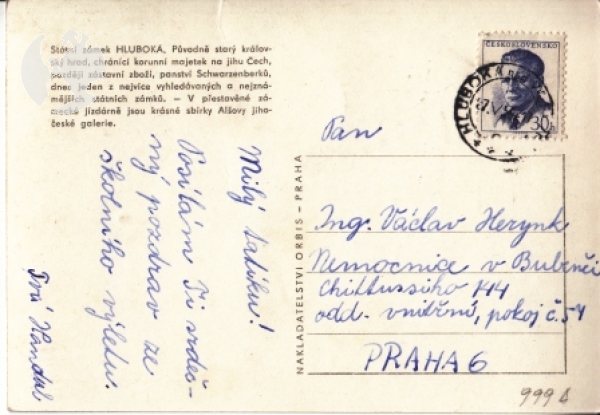 Státní zámek HLUBOKÁ. Původně starý králov-
ský hrad, chránící korunní majetek na jihu Čech,
později zástavní zboží, panství Schwarzenberků,
dnes jeden z nejvíce vyhledávaných a nejzná-
mějších státních zámků. — V přestavěné zá-
mecké jízdárně jsou krásné sbírky Alšovy jiho-
české galerie.
Milý tatíku!
Posílám Ti srdeč-
ný pozdrav ze
školního výletu.
Tvá
NAKLADATELSTVÍ ORBIS – PRAHA
ČESKOSLOVENSKO
30h
HLUBOKÁ
Pan
Ing. Václav Herynk
Nemocnice v Bubenči
Chittussiho 144
odd. vnitřní, pokoj č. 54
PRAHA 6